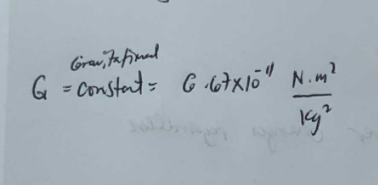 Gravitational
G = constant = 6.67x10⁻¹¹ N.m²
Kg²